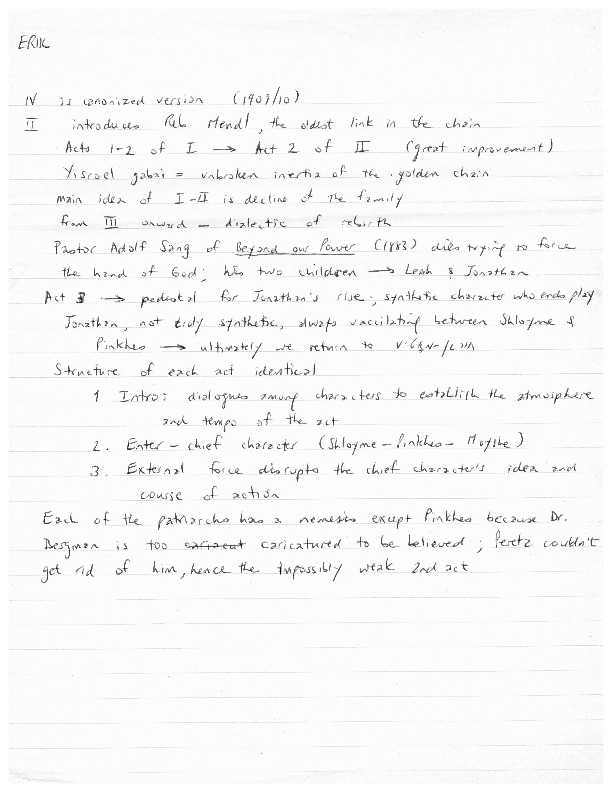 ERIK
IV is canonized version (1909/10)
II introduces Reb Mendl, the oldest link in the chain
Acts 1-2 of I → Act 2 of II (great improvement)
Yisroel gabai = unbroken inertia of the golden chain
main idea of I-II is decline of the family
from III onward - dialectic of rebirth
Pastor Adolf Sang of Beyond our Power (1883) dies trying to force
the hand of God; his two children → Leah & Jonathan
Act 3 → pedestal for Jonathan's rise; synthetic character who ends play
Jonathan, not truly synthetic, always vaccilating between Shloyme &
Pinkhes → ultimately we return to
Structure of each act identical
1 Intro: dialogues among characters to establish the atmosphere
and tempo of the act
2. Enter - chief character (Shloyme - Pinkhes - Moyshe)
3. External force disrupts the chief character's idea and
course of action
Each of the patriarchs has a nemesis except Pinkhes because Dr.
Bergman is too caricatured to be believed; Peretz couldn't
get rid of him, hence the impossibly weak 2nd act